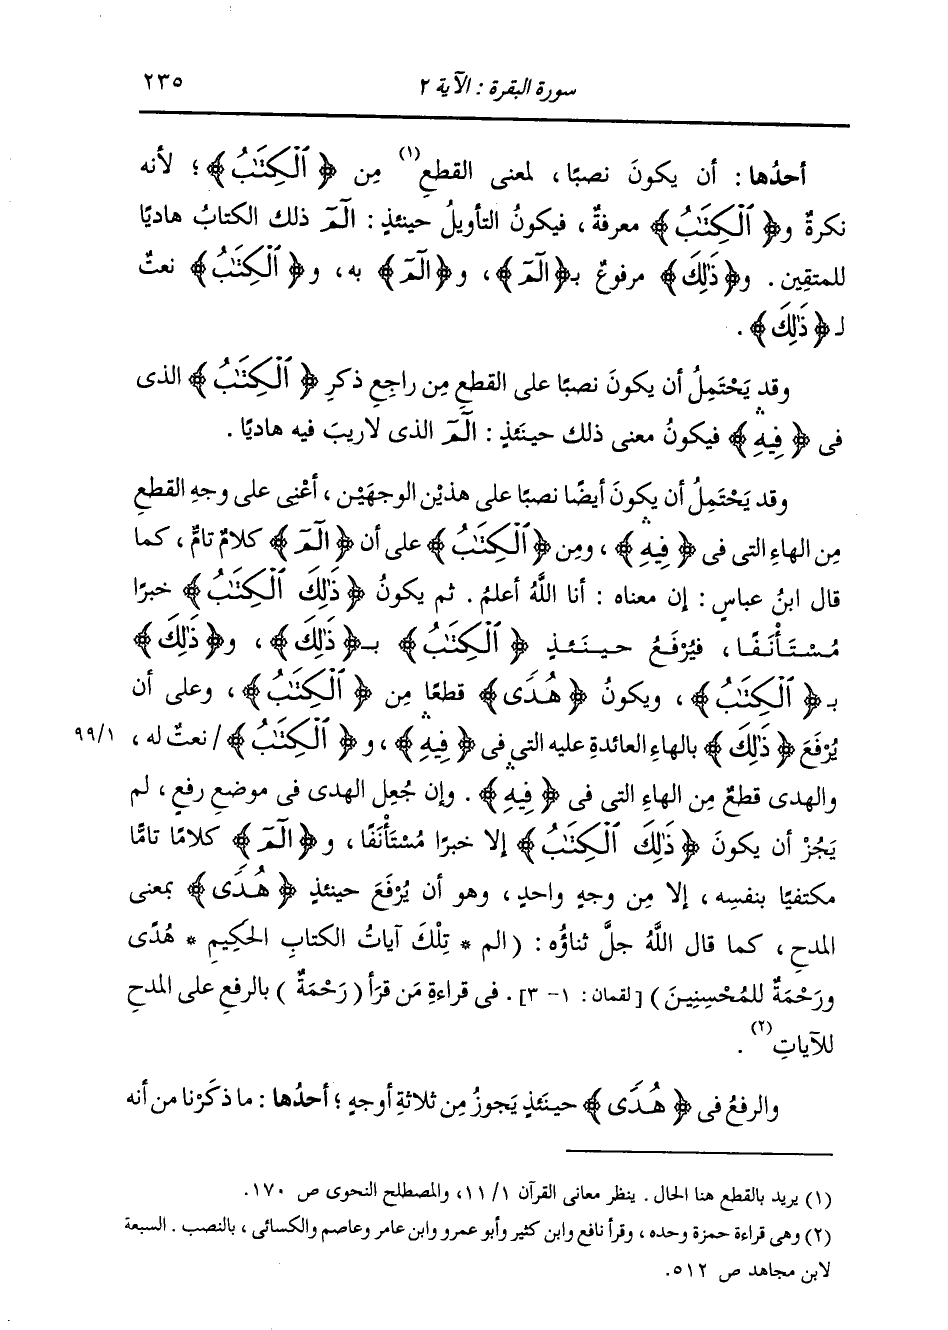 سورة البقرة : الآية ٢
٢٣٥
أحدُها : أن يكونَ نصبًا ، لمعنى القطعِ (١) مِن ﴿ ٱلْكِتَٰبُ ﴾ ؛ لأنه
نكرةٌ و﴿ ٱلْكِتَٰبُ ﴾ معرفةٌ ، فيكونُ التأويلُ حينئذٍ : الٓمٓ ذلك الكتابُ هاديًا
للمتقِين . و﴿ ذَٰلِكَ ﴾ مرفوعٌ بـ﴿ الٓمٓ ﴾ ، و﴿ الٓمٓ ﴾ به ، و﴿ ٱلْكِتَٰبُ ﴾ نعتٌ
لـ ﴿ ذَٰلِكَ ﴾ .
وقد يَحْتَمِلُ أن يكونَ نصبًا على القطعِ مِن راجِعِ ذكرِ ﴿ ٱلْكِتَٰبُ ﴾ الذى
فى ﴿ فِيهِ ﴾ فيكونُ معنى ذلك حينَئذٍ : الٓمٓ الذى لا ريبَ فيه هاديًا .
وقد يَحْتَمِلُ أن يكونَ أيضًا نصبًا على هذيْن الوجهَيْن ، أعْنِى على وجهِ القطعِ
مِن الهاءِ التى فى ﴿ فِيهِ ﴾ ، ومِن ﴿ ٱلْكِتَٰبُ ﴾ على أن ﴿ الٓمٓ ﴾ كلامٌ تامٌّ ، كما
قال ابنُ عباسٍ : إن معناه : أنا اللَّهُ أعلمُ . ثم يكونُ ﴿ ذَٰلِكَ ٱلْكِتَٰبُ ﴾ خبرًا
مُسْتَأْنَفًا ، فيُرْفَعُ حينَئذٍ ﴿ ٱلْكِتَٰبُ ﴾ بـ﴿ ذَٰلِكَ ﴾ ، و﴿ ذَٰلِكَ ﴾
بـ ﴿ ٱلْكِتَٰبُ ﴾ ، ويكونُ ﴿ هُدًى ﴾ قطعًا مِن ﴿ ٱلْكِتَٰبُ ﴾ ، وعلى أن
يُرْفَعَ ﴿ ذَٰلِكَ ﴾ بالهاءِ العائدةِ عليه التى فى ﴿ فِيهِ ﴾ ، و﴿ ٱلْكِتَٰبُ ﴾ / نعتٌ له ، ٩٩/١
والهدى قطعٌ مِن الهاءِ التى فى ﴿ فِيهِ ﴾ . وإن جُعِل الهدى فى موضعِ رفعٍ ، لم
يَجُزْ أن يكونَ ﴿ ذَٰلِكَ ٱلْكِتَٰبُ ﴾ إلا خبرًا مُسْتَأْنَفًا ، و﴿ الٓمٓ ﴾ كلامًا تامًّا
مكتفيًا بنفسِه ، إلا مِن وجهٍ واحدٍ ، وهو أن يُرْفَعَ حينئذٍ ﴿ هُدًى ﴾ بمعنى
المدحِ ، كما قال اللَّهُ جلَّ ثناؤُه : ( الم * تِلْكَ آياتُ الكتابِ الحَكِيمِ * هُدًى
ورَحْمَةٌ للمُحْسِنِينَ ) [ لقمان : ١- ٣] . فى قراءةِ مَن قرَأ ( رَحْمَةٌ ) بالرفعِ على المدحِ
للآياتِ (٢) .
والرفعُ فى ﴿ هُدًى ﴾ حينَئذٍ يَجوزُ مِن ثلاثةِ أوجهٍ ؛ أحدُها : ما ذكَرْنا من أنه
(١) يريد بالقطع هنا الحال . ينظر معانى القرآن ١١/١، والمصطلح النحوى ص ١٧٠.
(٢) وهى قراءة حمزة وحده ، وقرأ نافع وابن كثير وأبو عمرو وابن عامر وعاصم والكسائى ، بالنصب . السبعة
لابن مجاهد ص ٥١٢.